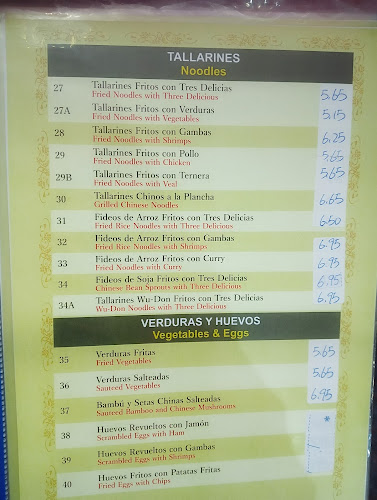 TALLARINES
Noodles
27 Tallarines Fritos con Tres Delicias 5.65
Fried Noodles with Three Delicious
27A Tallarines Fritos con Verduras 5.15
Fried Noodles with Vegetables
28 Tallarines Fritos con Gambas 6.25
Fried Noodles with Shrimps
29 Tallarines Fritos con Pollo 5.65
Fried Noodles with Chicken
29B Tallarines Fritos con Ternera 5.65
Fried Noodles with Veal
30 Tallarines Chinos a la Plancha 6.65
Grilled Chinese Noodles
31 Fideos de Arroz Fritos con Tres Delicias 6.50
Fried Rice Noodles with Three Delicious
32 Fideos de Arroz Fritos con Gambas 6.95
Fried Rice Noodles with Shrimps
33 Fideos de Arroz Fritos con Curry 6.95
Fried Noodles with Curry
34 Fideos de Soja Fritos con Tres Delicias 6.95
Chinese Bean Sprouts with Three Delicious
34A Tallarines Wu-Don Fritos con Tres Delicias 6.95
Wu-Don Noodles with Three Delicious
VERDURAS Y HUEVOS
Vegetables & Eggs
35 Verduras Fritas 5.65
Fried Vegetables
36 Verduras Salteadas 5.65
Sauteed Vegetables
37 Bambú y Setas Chinas Salteadas 6.95
Sauteed Bamboo and Chinese Mushrooms
38 Huevos Revueltos con Jamón
Scrambled Eggs with Ham
39 Huevos Revueltos con Gambas
Scrambled Eggs with Shrimps
40 Huevos Fritos con Patatas Fritas
Fried Eggs with Chips